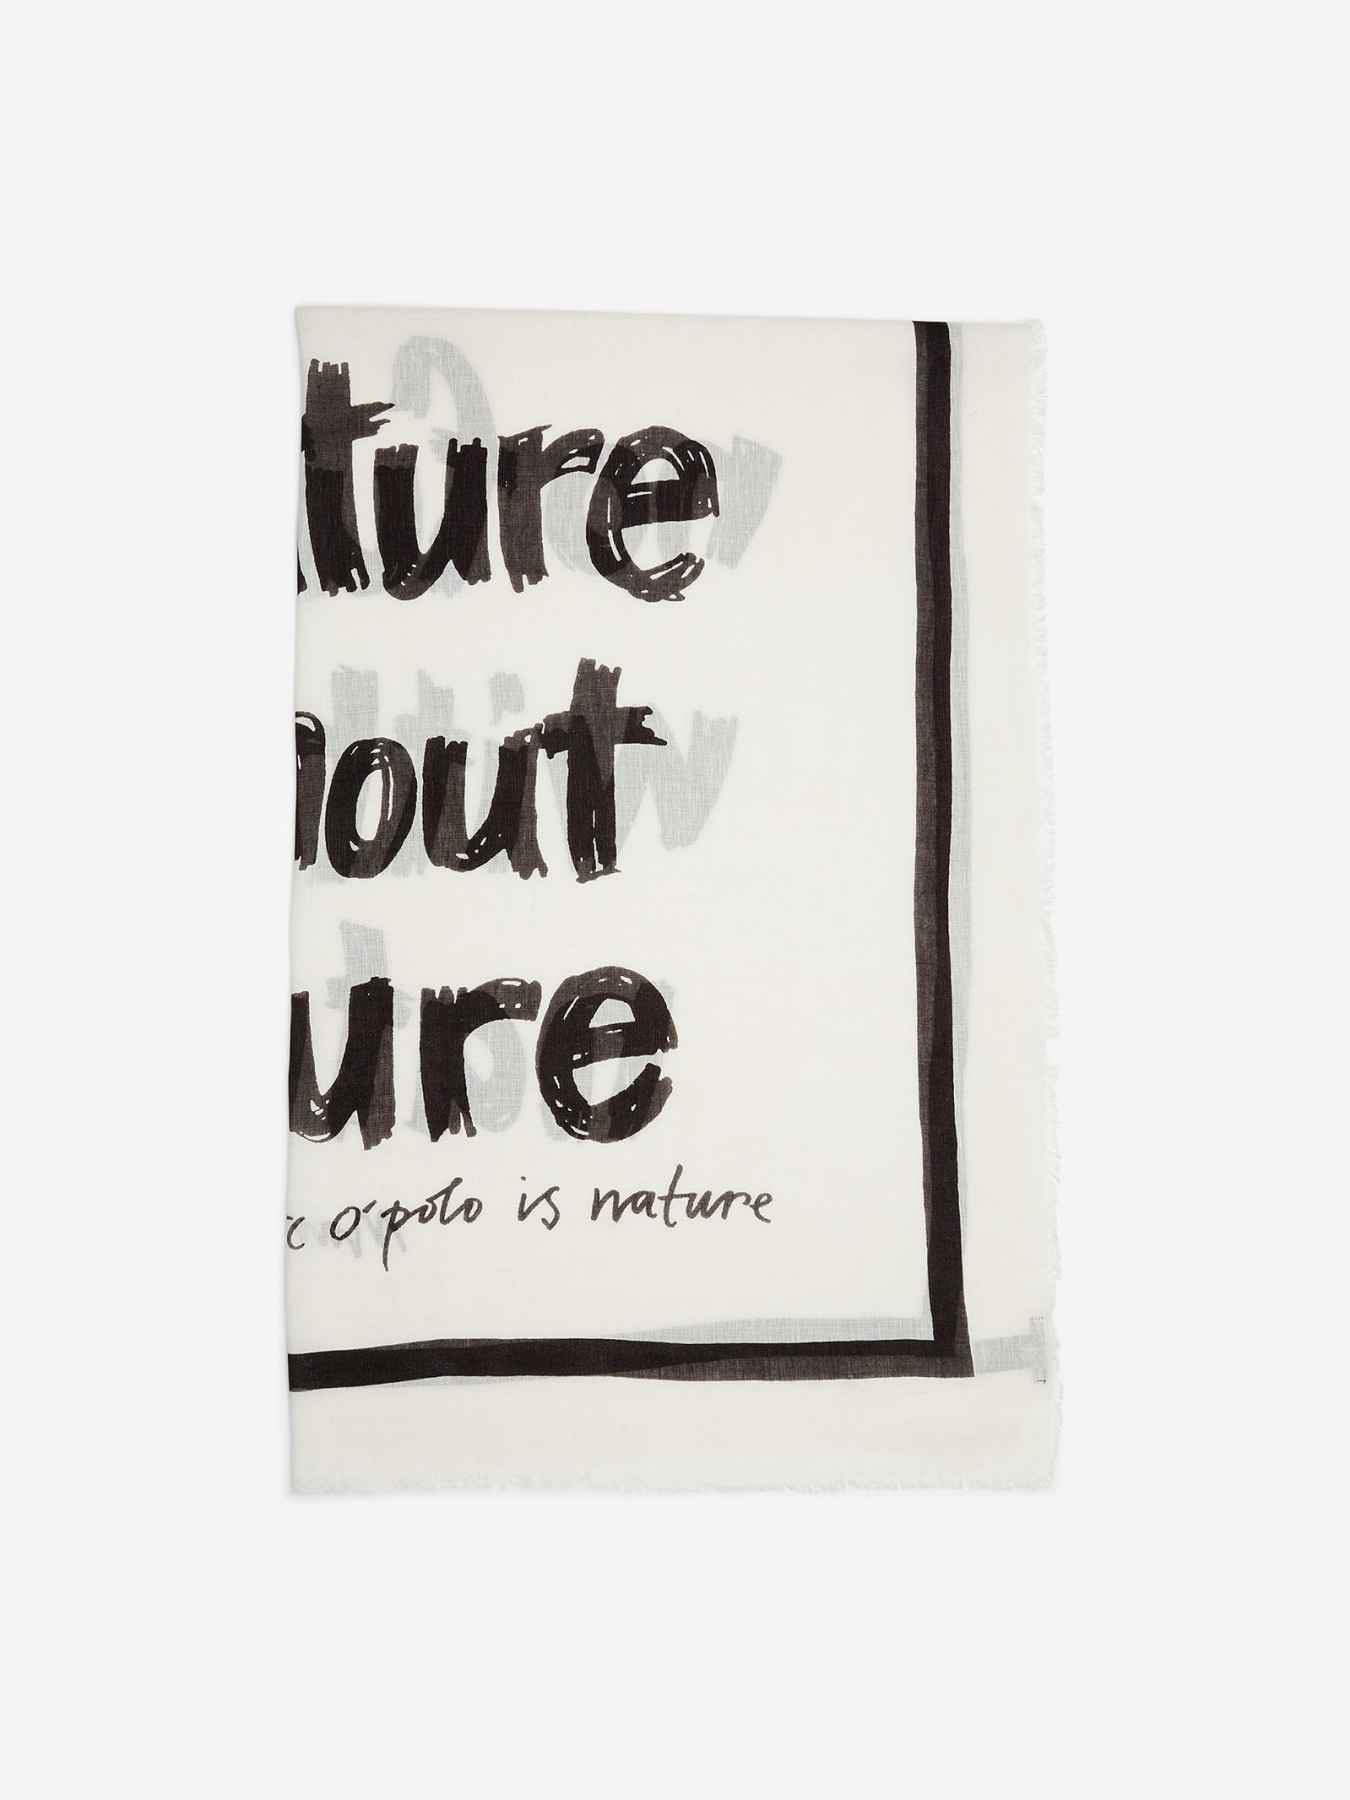 ture
hout
ure
c o'polo is nature